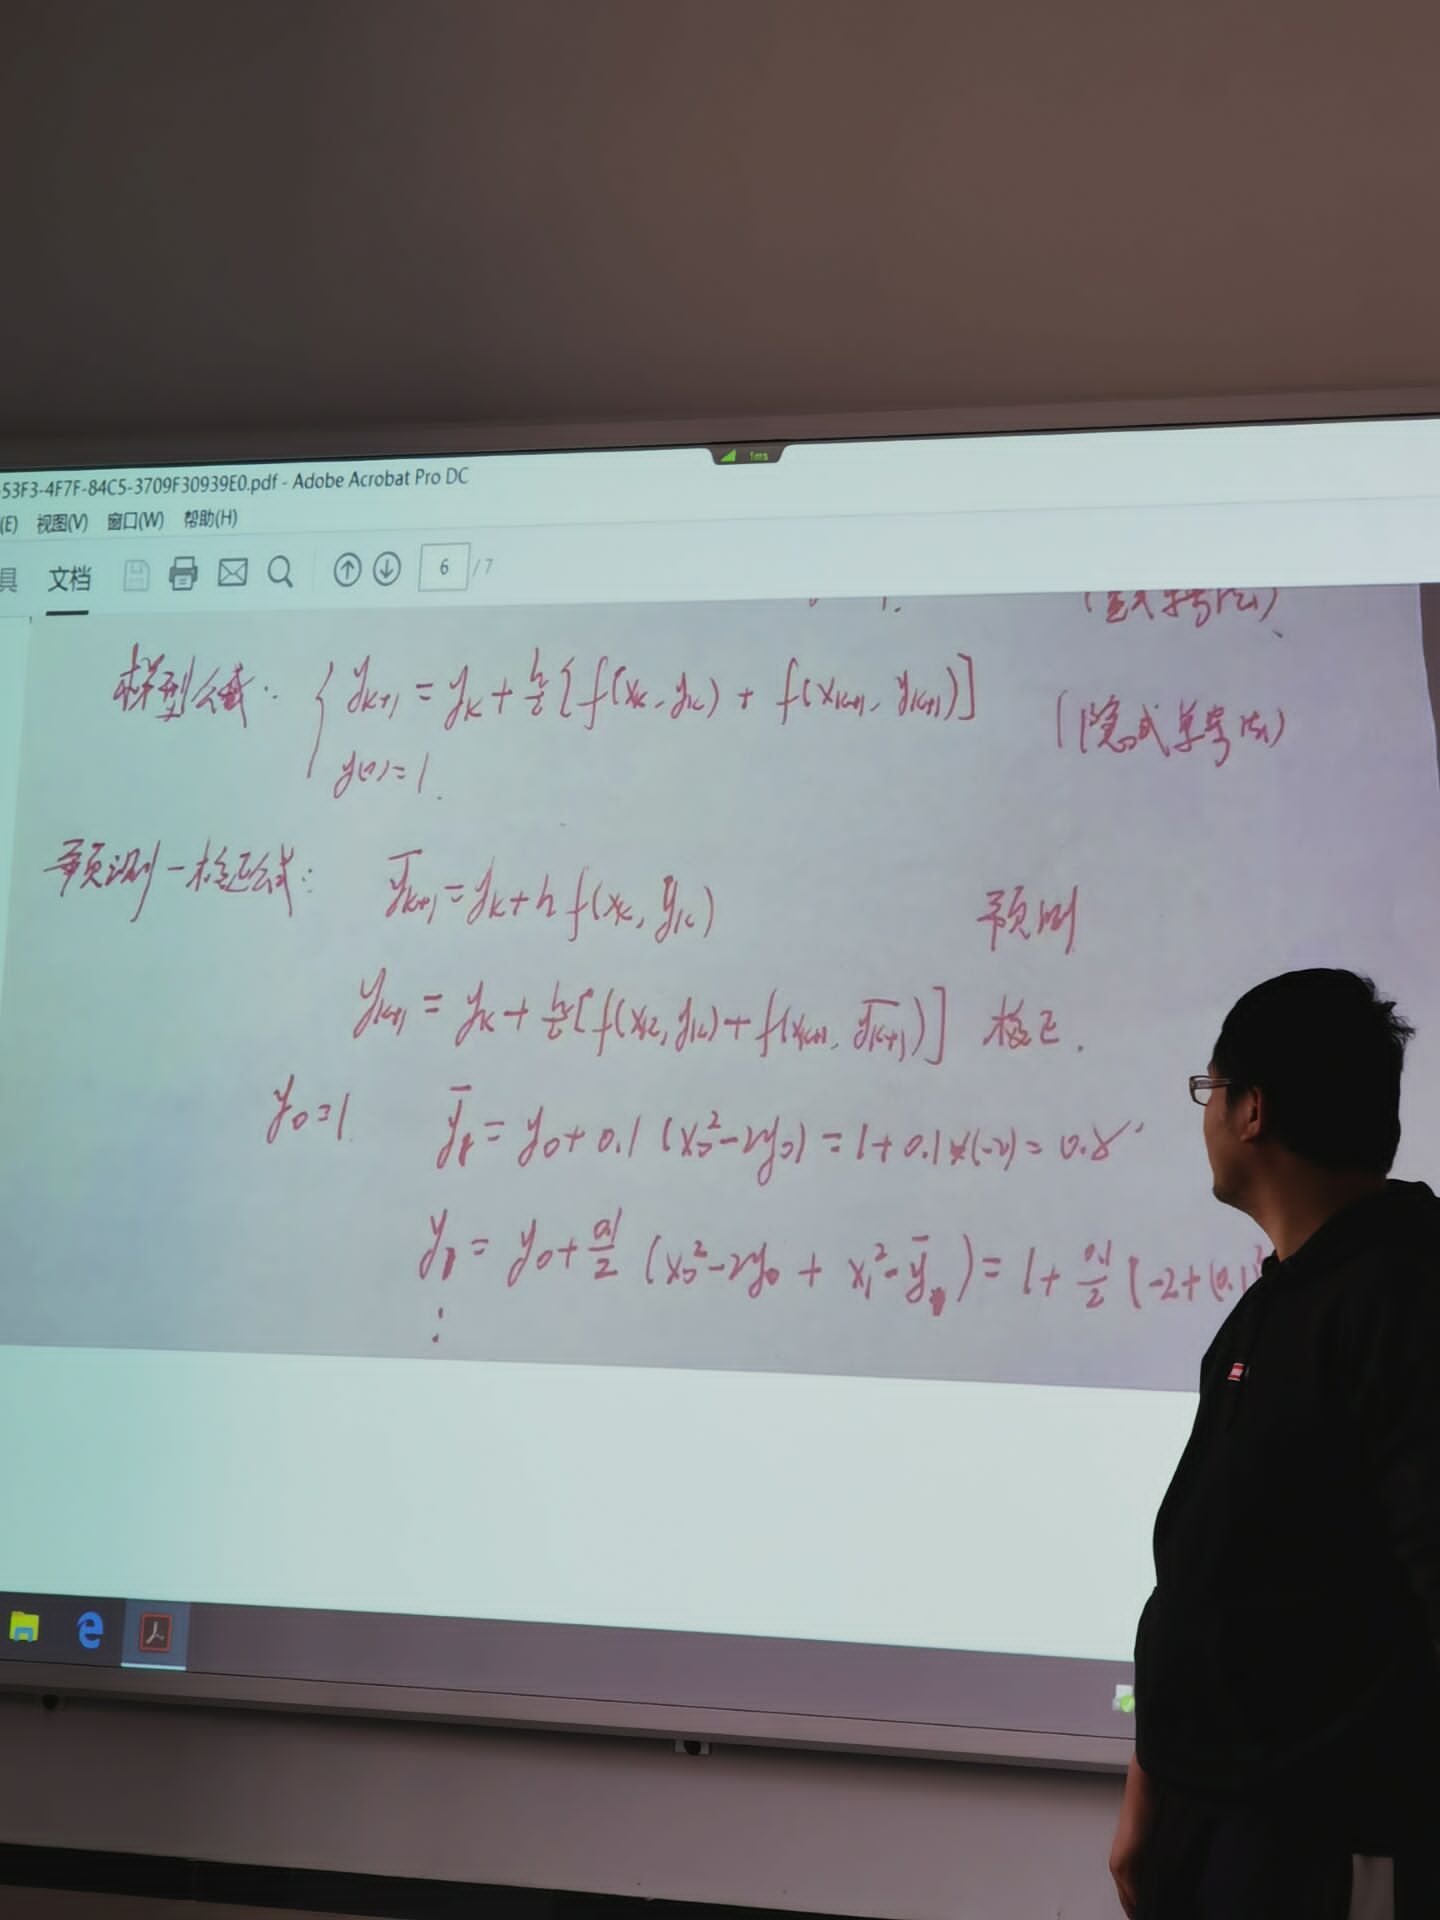 53F3-4F7F-84C5-3709F30939E0.pdf - Adobe Acrobat Pro DC
1ms
(E) 视图(V) 窗口(W) 帮助(H)
具 文档 6 / 7
梯型公式: { y_{k+1} = y_k + h/2 [f(x_k, y_k) + f(x_{k+1}, y_{k+1})] (隐式单步法)
y(0)=1.
预测-校正公式: \overline{y_{k+1}} = y_k + h f(x_k, y_k) 预测
y_{k+1} = y_k + h/2 [f(x_k, y_k) + f(x_{k+1}, \overline{y_{k+1}})] 校正.
y_0=1. \overline{y}_1 = y_0 + 0.1 (x_0^2 - 2y_0) = 1 + 0.1×(-2) = 0.8
y_1 = y_0 + 0.1/2 (x_0^2 - 2y_0 + x_1^2 - \overline{y}_1) = 1 + 0.1/2 (-2 + (0.1)^2
⋮